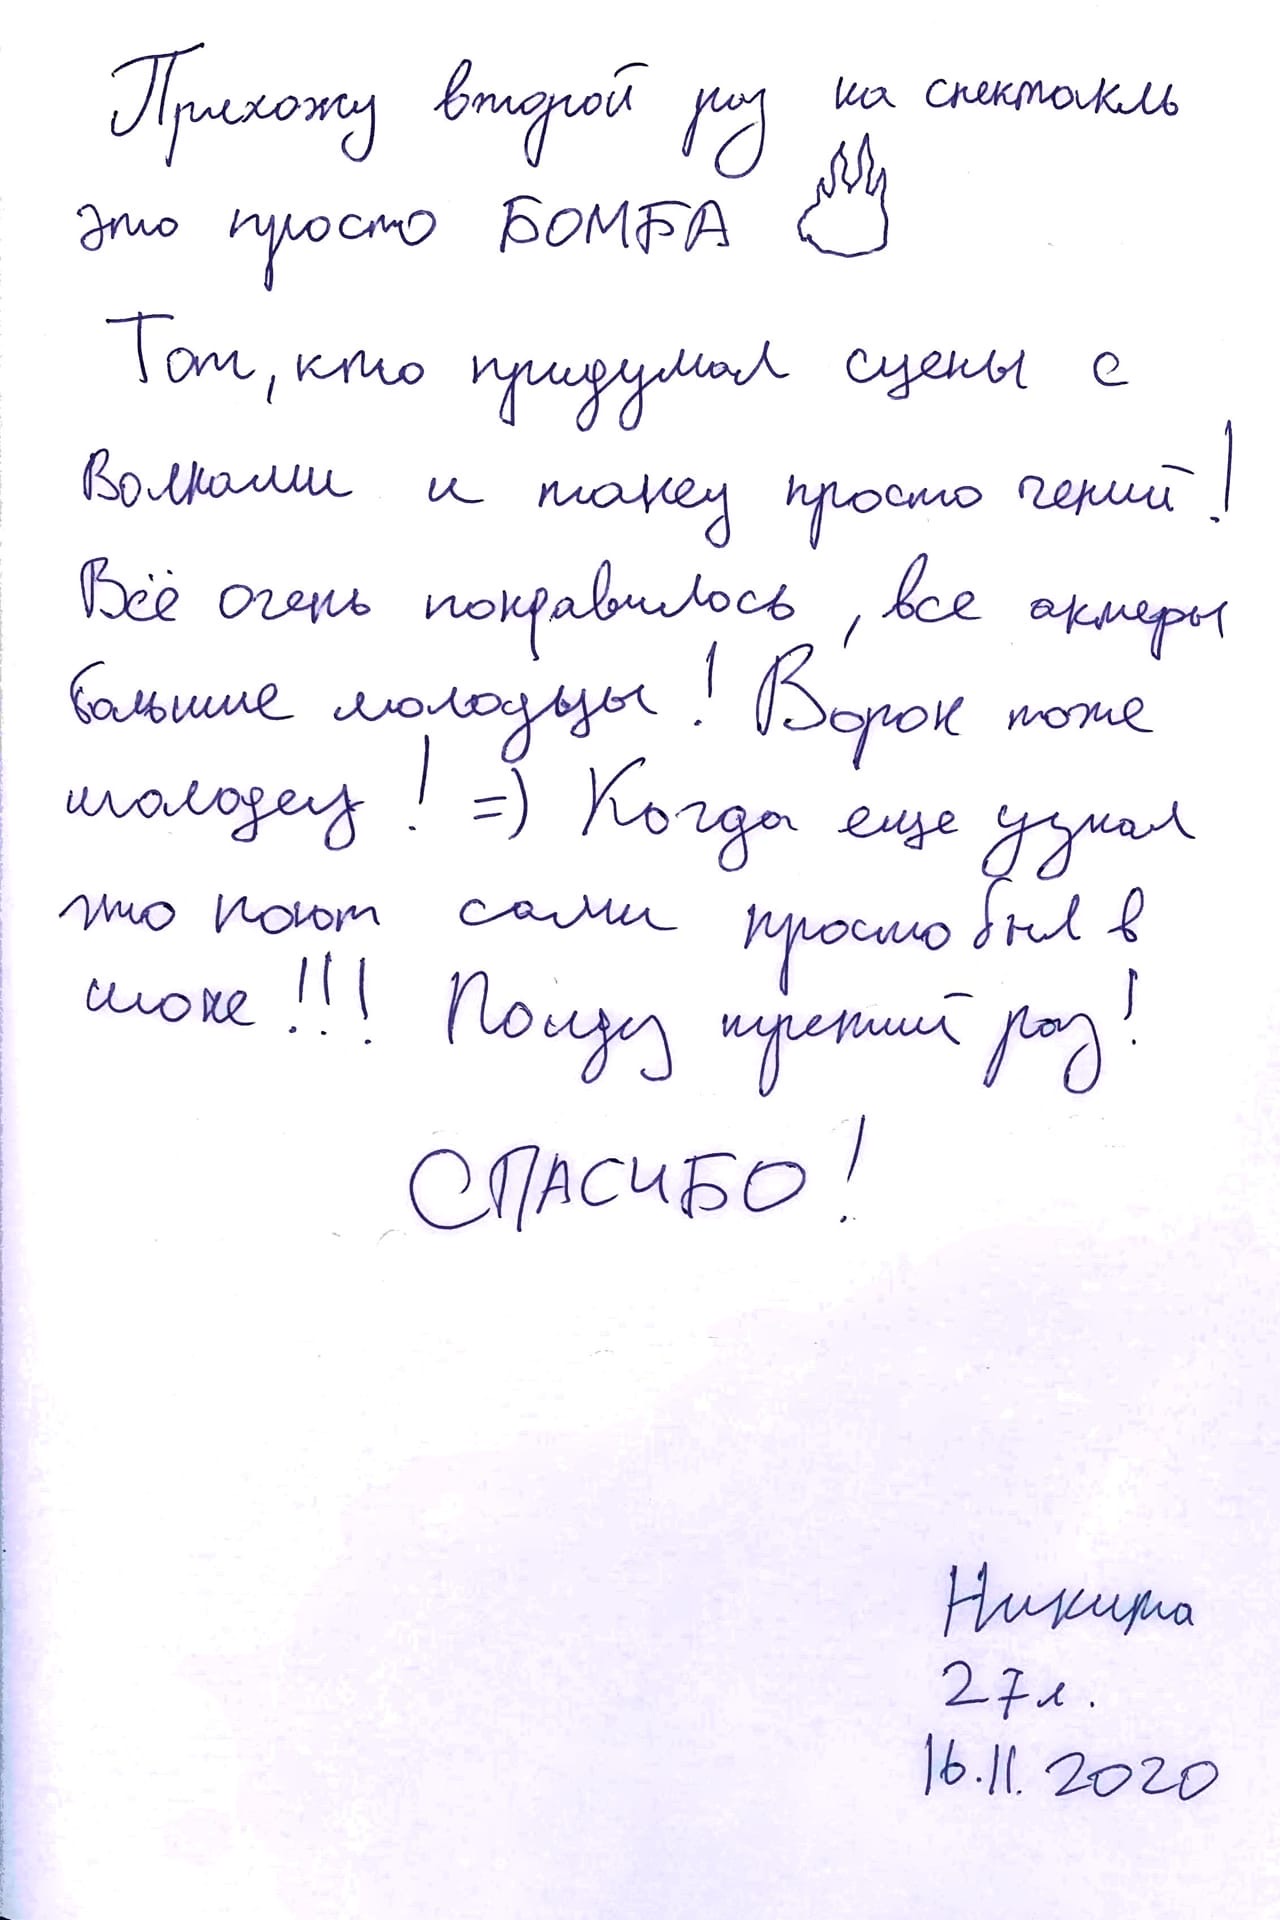 Прихожу второй раз на спектакль
это просто БОМБА
Тот, кто придумал сцены с
Волками и танец просто гений!
Всё очень понравилось, все актеры
большие молодцы! Ворон тоже
молодец! =) Когда еще узнал
что поют сами просто был в
шоке!!! Пойду третий раз!
СПАСИБО!
Никита
27л.
16.11.2020